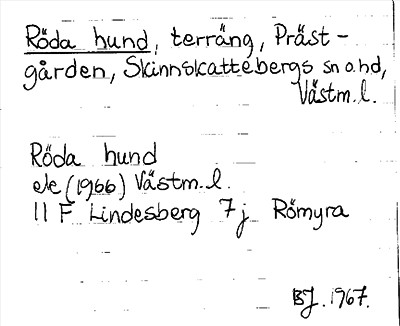 Röda hund, terräng, Präst-
gården, Skinnskattebergs sn o. hd,
Västm. l.
Röda hund
ek (1966) Västm. l.
11 F Lindesberg 7j Römyra
BJ. 1967.